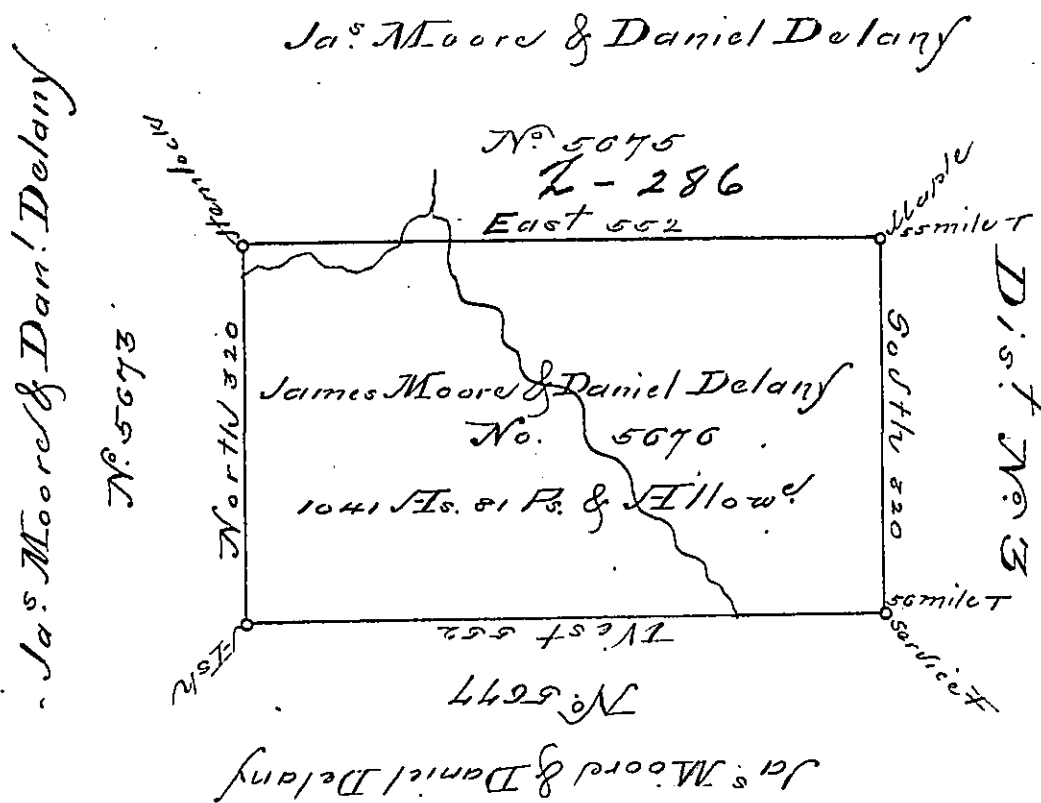 Jaˢ. Moore & Daniel Delany
Nº. 5675
Z - 286
East 552
Hemlock
Maple
55 mile T
Jaˢ. Moore & Danˡ. Delany
Nº. 5673
North 320
James Moore & Daniel Delany
No. 5676
1041 As. 81 Ps. & Allowᵉ.
South 320
Dist. Nº. 3
56 mile T
Service T
Ash
West 552
Nº. 5677
Jaˢ. Moore & Daniel Delany